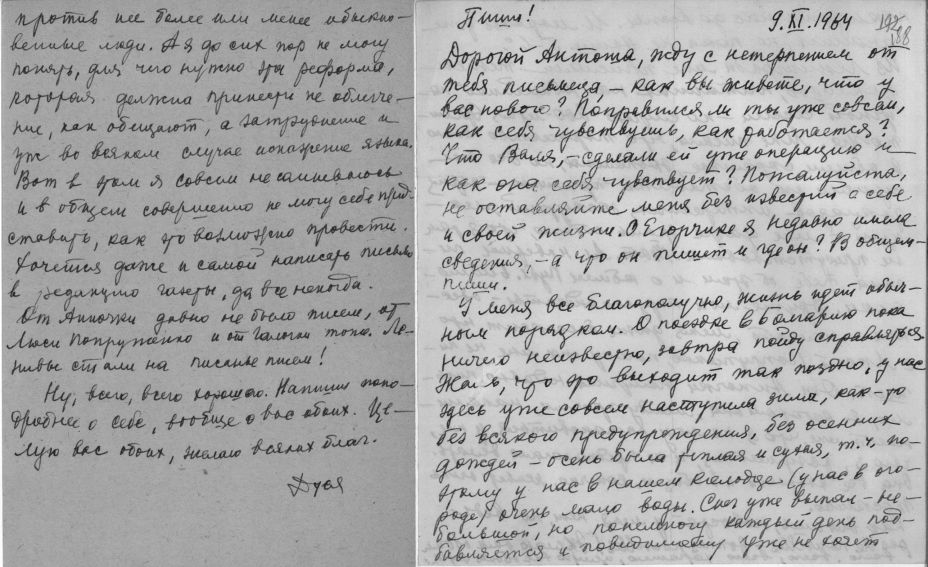 против нее более или менее обыкно-
венные люди. А я до сих пор не могу
понять, для чего нужно эта реформа,
которая должна принести не облегче-
ние, как обещают, а затруднение и
уж во всяком случае искажение языка.
Вот в этом я совсем не сомневаюсь
и в общем совершенно не могу себе пред-
ставить, как это возможно провести.
Хочется даже и самой написать письмо
в редакцию газеты, да все некогда.
От Анночки давно не было писем, от
Люси Попруженко и от Галочки тоже. Ле-
нивы стали на писанье писем!
Ну, всего, всего хорошего. Напиши попо-
дробнее о себе, вообще о вас обоих. Це-
лую вас обоих, желаю всяких благ.
Дуся
Пиши!
9.XI.1964
Дорогой Антоша, жду с нетерпением от
тебя письмеца – как вы живете, что у
вас нового? Поправился ли ты уже совсем,
как себя чувствуешь, как работается?
Что Валя, – сделали ей уже операцию и
как она себя чувствует? Пожалуйста,
не оставляйте меня без известий о себе
и своей жизни. О Егорчике я недавно имела
сведения, – а что он пишет и где он? В общем –
пиши.
У меня все благополучно, жизнь идет обыч-
ным порядком. О поездке в Болгарию пока
ничего неизвестно, завтра пойду справляться.
Жаль, что это выходит так поздно, у нас
здесь уже совсем наступила зима, как-то
без всякого предупреждения, без осенних
дождей – осень была теплая и сухая, т.ч. по-
этому у нас в нашем колодце (у нас в ого-
роде) очень мало воды. Снег уже выпал – не-
большой, но понемногу каждый день под-
бавляется и повидимому уже не хочет